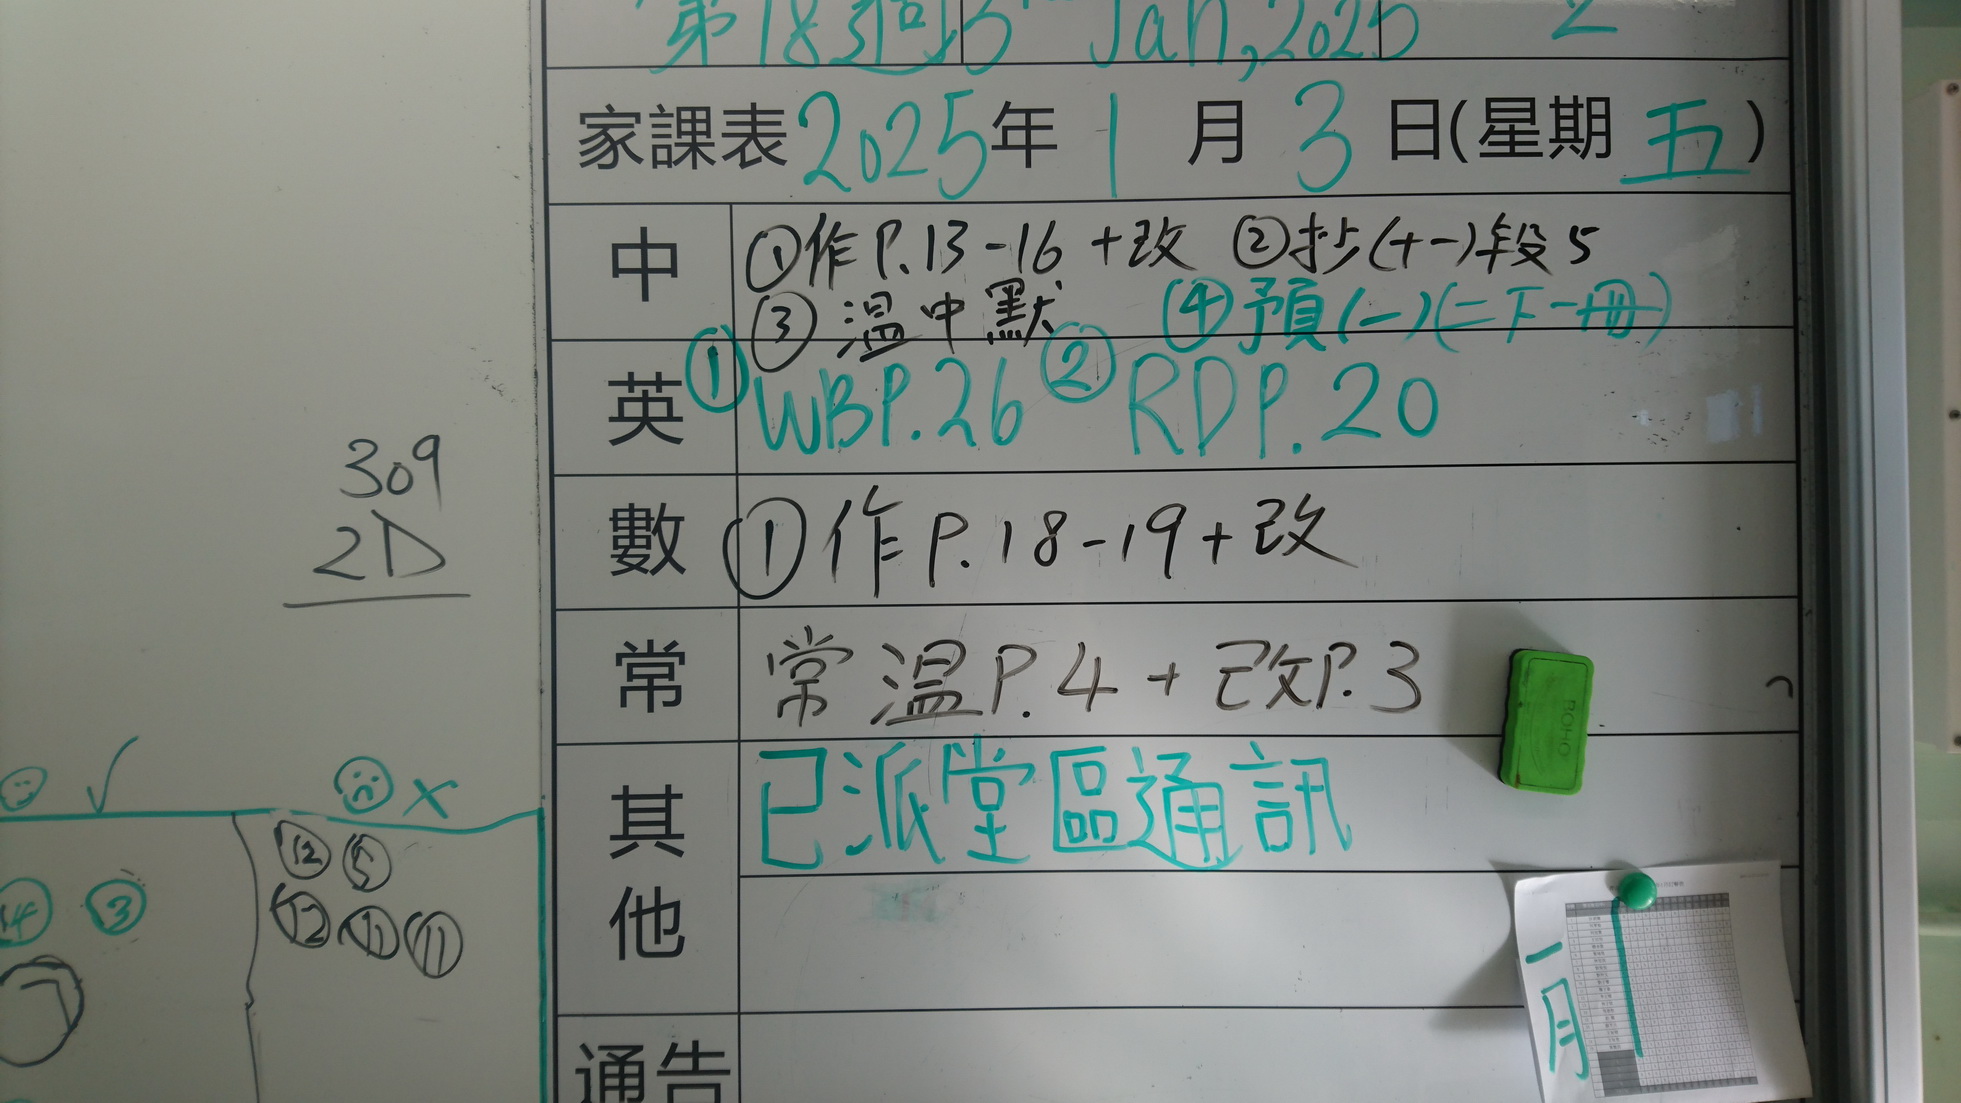 第18週 3 Jan, 2025 2
家課表 2025年 1 月 3 日(星期 五)
中 ①作P.13-16 +改 ②抄(十一)段5
③溫中默 ④預(一)(二下一冊)
英 ①WBP.26 ②RDP.20
數 ①作P.18-19+改
常 常溫P.4 + 改P.3
其他 已派堂區通訊
通告
309
2D
✓ ×
14 3
12 5
12 11 11
BOHO
一月